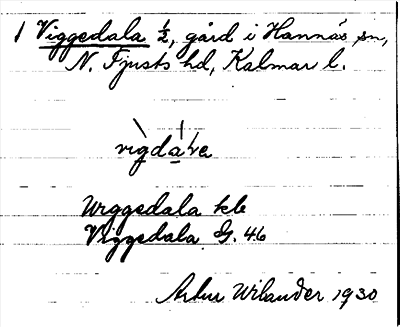 1 Viggedala ½, gård i Hannäs sn,
N. Tjusts hd, Kalmar l.
vigdala
Wiggedala kb
Viggedala G. 46
Artur Wilander 1930